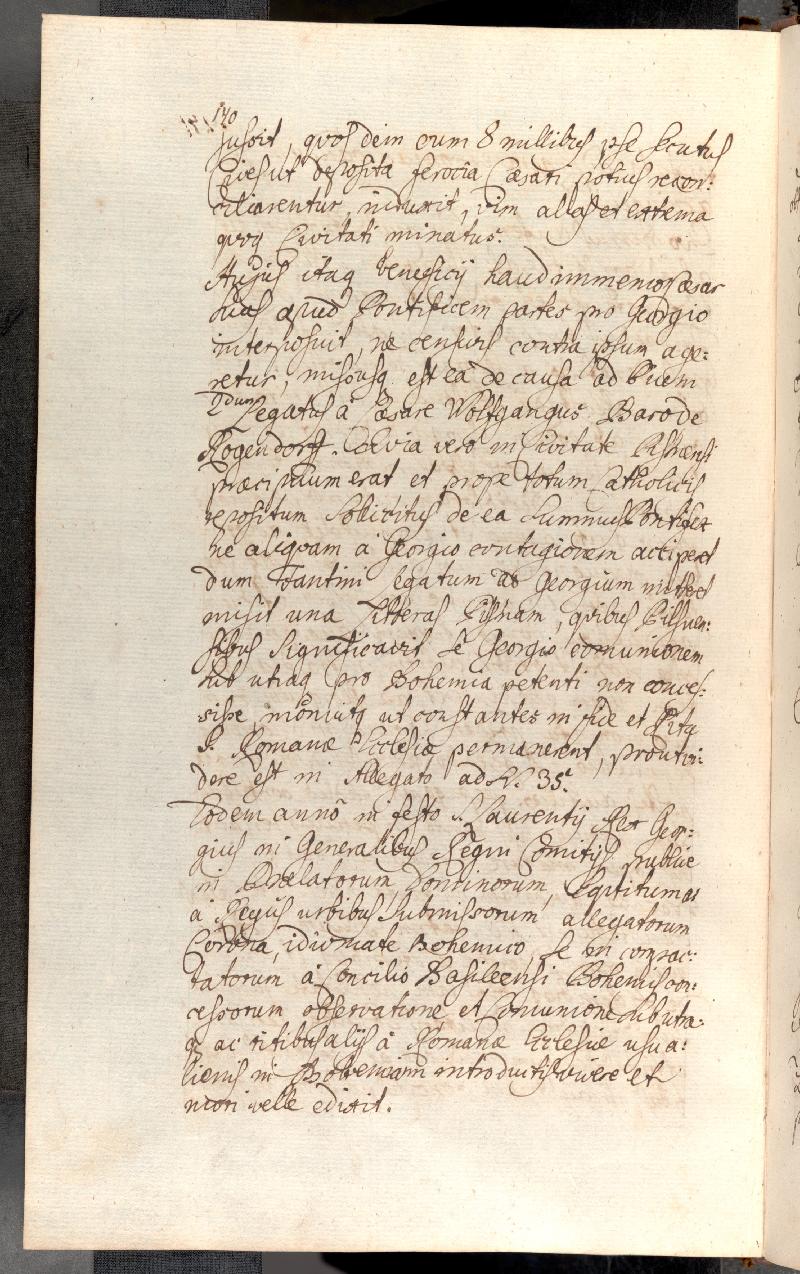 140
jussit, quos dem cum 8 millibus ipse secutus
Cives ut deposita ferocia Cæsari potius recon:
ciliarentur, induxit, vim aliàs et extrema
quæq Civitati minatus.
Hujus itaq beneficij haud immemor Cæsar
suas apud Pontificem partes pro Georgio
interposuit, ne censuris contra ipsum age:
retur; missusq est ea de causa ad
2dum Legatus à Cæsare Wolfgangus Baro de
Rogendorff. Cùm vero in Civitate Pilsnensi
præcipuum erat et prope totum Catholicis
repositum sollicitus de ea Summus Pontifex
ne aliquam à Georgio contagionem acciperet
dum Fantini legatum ad Georgium mitteret
misit una Litteras Pilsnam, quibus Pilsnen:
sibus significavit se Georgio comunionem
sub utraq pro Bohemia petenti non conces:
sisse, monuitq ut constantes in fide et
S. Romanæ Ecclesiæ permanerent, prout vi:
dere est in Allegato ad N. 35.
Eodem anno in festo S. Laurentij Rex Geor:
gius in Generalibus Regni Comitijs publice
in Prælatorum, Dominorum, Equitum as
à Regijs urbibus submissorum allegatorum
Corona, idiomate Bohemico, se in compac:
tatorum à Concilio Basileensi Bohemis con:
cessorum observatione et Comunione sub utra:
q ac ritibus alijs à Romanæ Ecclesiæ usu a:
lienis in Bohemiam introductis vivere et
mori velle edixit.